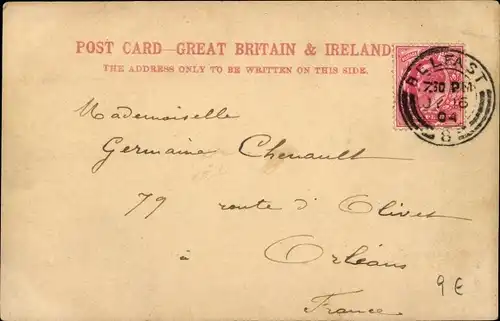 POST CARD—GREAT BRITAIN & IRELAND
THE ADDRESS ONLY TO BE WRITTEN ON THIS SIDE.
BELFAST
7.30 PM
16
04
8
Mademoiselle
Germaine Chenault
79 route d'Olivet
à
Orléans
France
9€